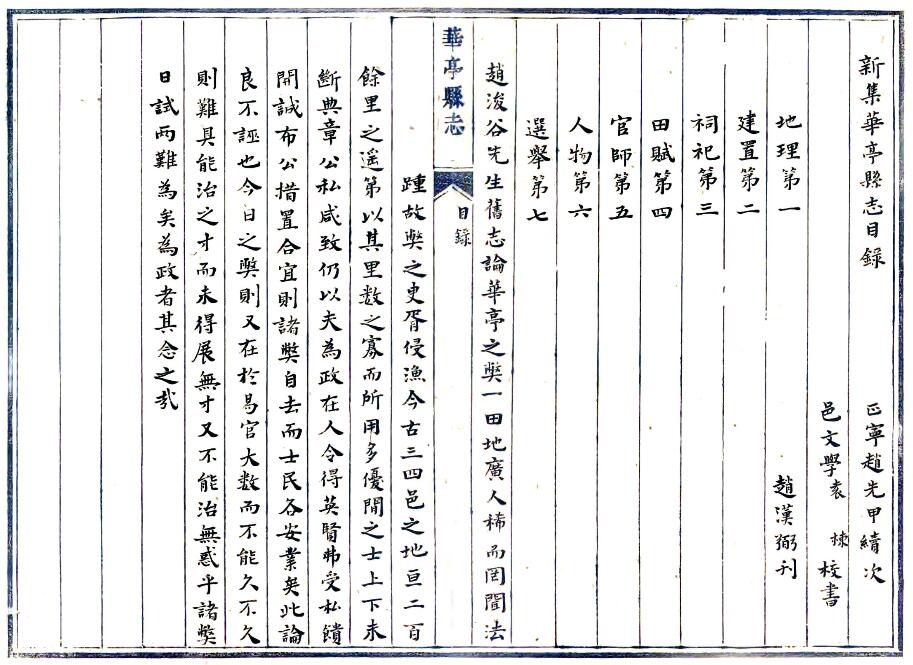 新集華亭縣志目録
正寧趙先甲續次
邑文學袁　棟校書
趙漢弼刊
地理第一
建置第二
祠祀第三
田賦第四
官師第五
人物第六
選舉第七
趙浚谷先生舊志論華亭之獘一田地廣人稀而罔聞法
華亭縣志
目録
踵故獘之吏胥侵漁今古三四邑之地亘二百
餘里之遥第以其里数之寡而所用多優閒之士上下未
斷典章公私咸致仍以夫為政在人令得英賢弗受私饋
開誠布公措置合宜則諸獘自去而士民各安業矣此論
良不誣也今日之獘則又在於易官大数而不能久不久
則難具能治之才而未得展無才又不能治無惑乎諸獘
日試而難為矣為政者其念之哉